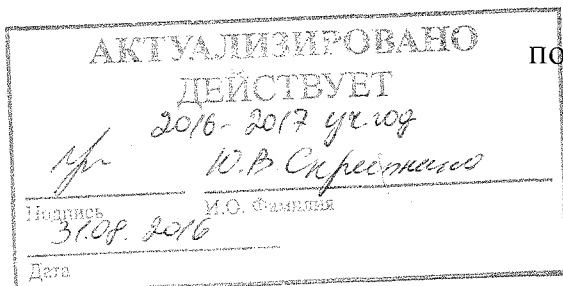 АКТУАЛИЗИРОВАНО
ПО
ДЕЙСТВУЕТ
2016-2017 уч. год
Ю.В. Скрипкина
Подпись И.О. Фамилия
31.08. 2016
Дата